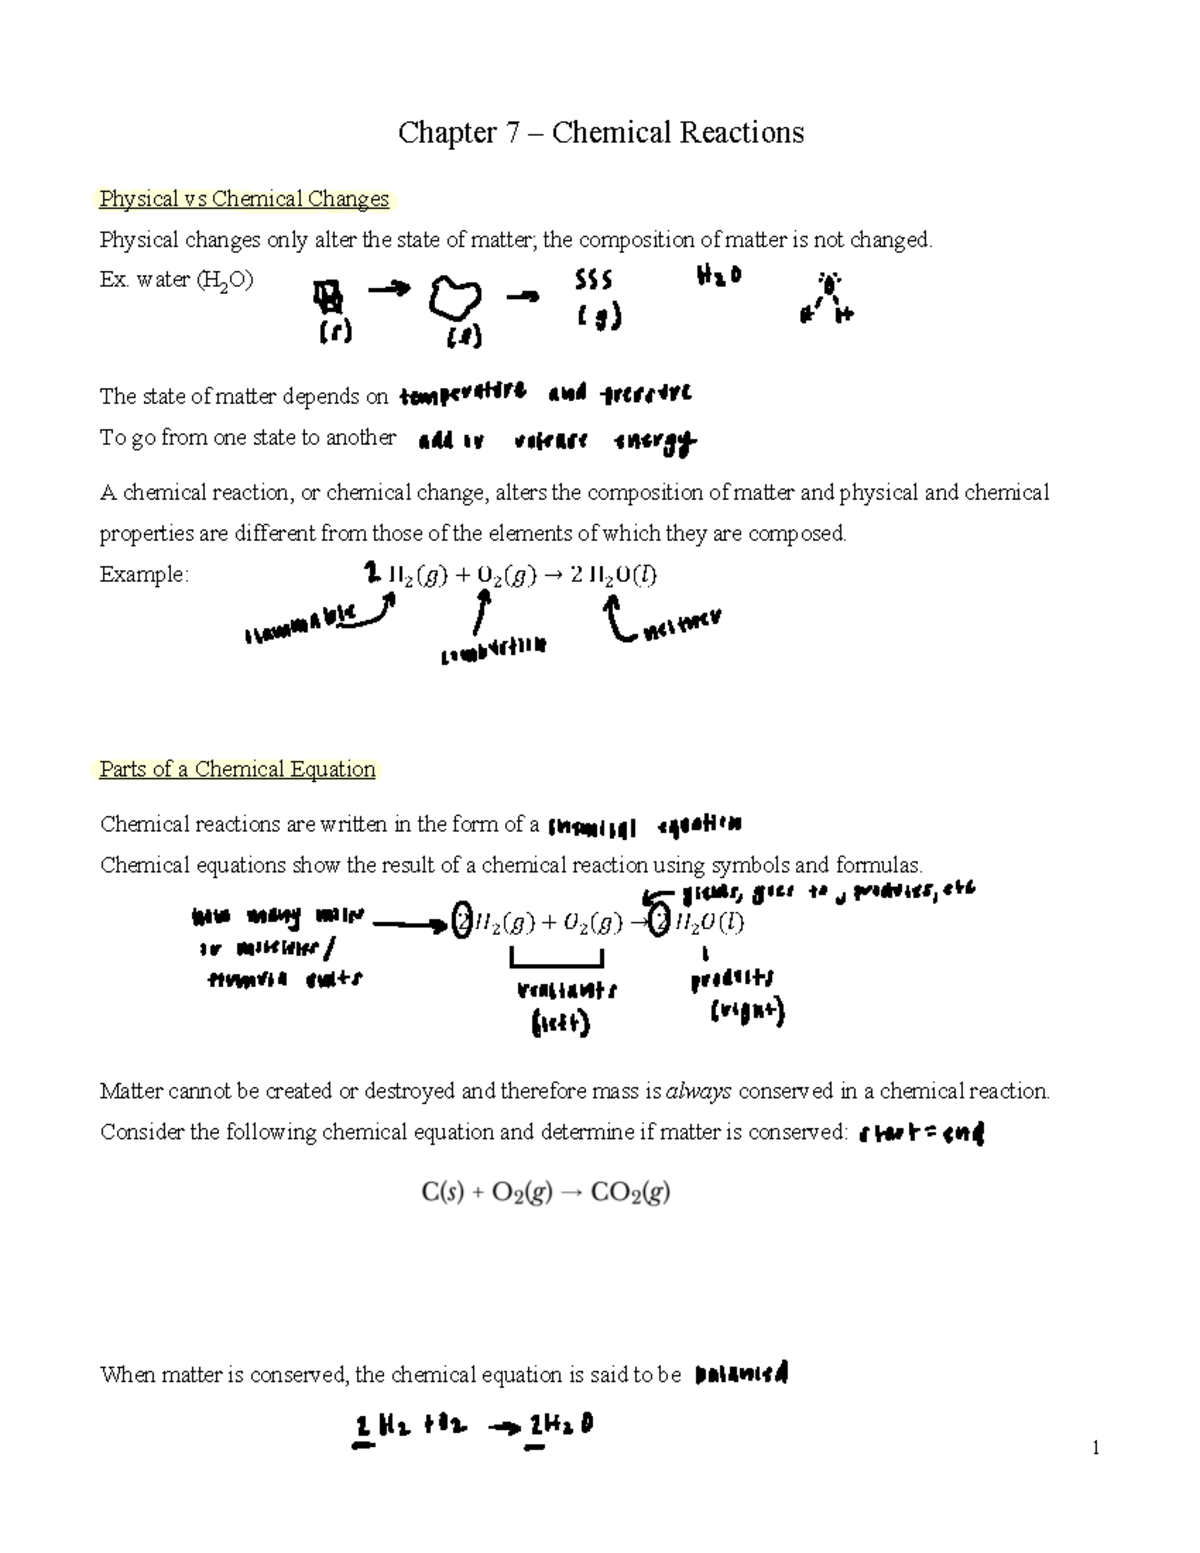 Chapter 7 – Chemical Reactions
Physical vs Chemical Changes
Physical changes only alter the state of matter; the composition of matter is not changed.
Ex. water (H₂O)
SSS H₂O
(s) (l) (g)
The state of matter depends on temperature and pressure
To go from one state to another add or release energy
A chemical reaction, or chemical change, alters the composition of matter and physical and chemical
properties are different from those of the elements of which they are composed.
Example: 2 H₂(g) + O₂(g) → 2 H₂O(l)
flammable combustion neither
Parts of a Chemical Equation
Chemical reactions are written in the form of a chemical equation
Chemical equations show the result of a chemical reaction using symbols and formulas.
← yields, goes to, produces, etc
how many moles → 2H₂(g) + O₂(g) → 2 H₂O(l)
or molecules/
formula units
reactants products
(left) (right)
Matter cannot be created or destroyed and therefore mass is always conserved in a chemical reaction.
Consider the following chemical equation and determine if matter is conserved: start = end
C(s) + O₂(g) → CO₂(g)
When matter is conserved, the chemical equation is said to be balanced
2 H₂ + O₂ → 2H₂O
1